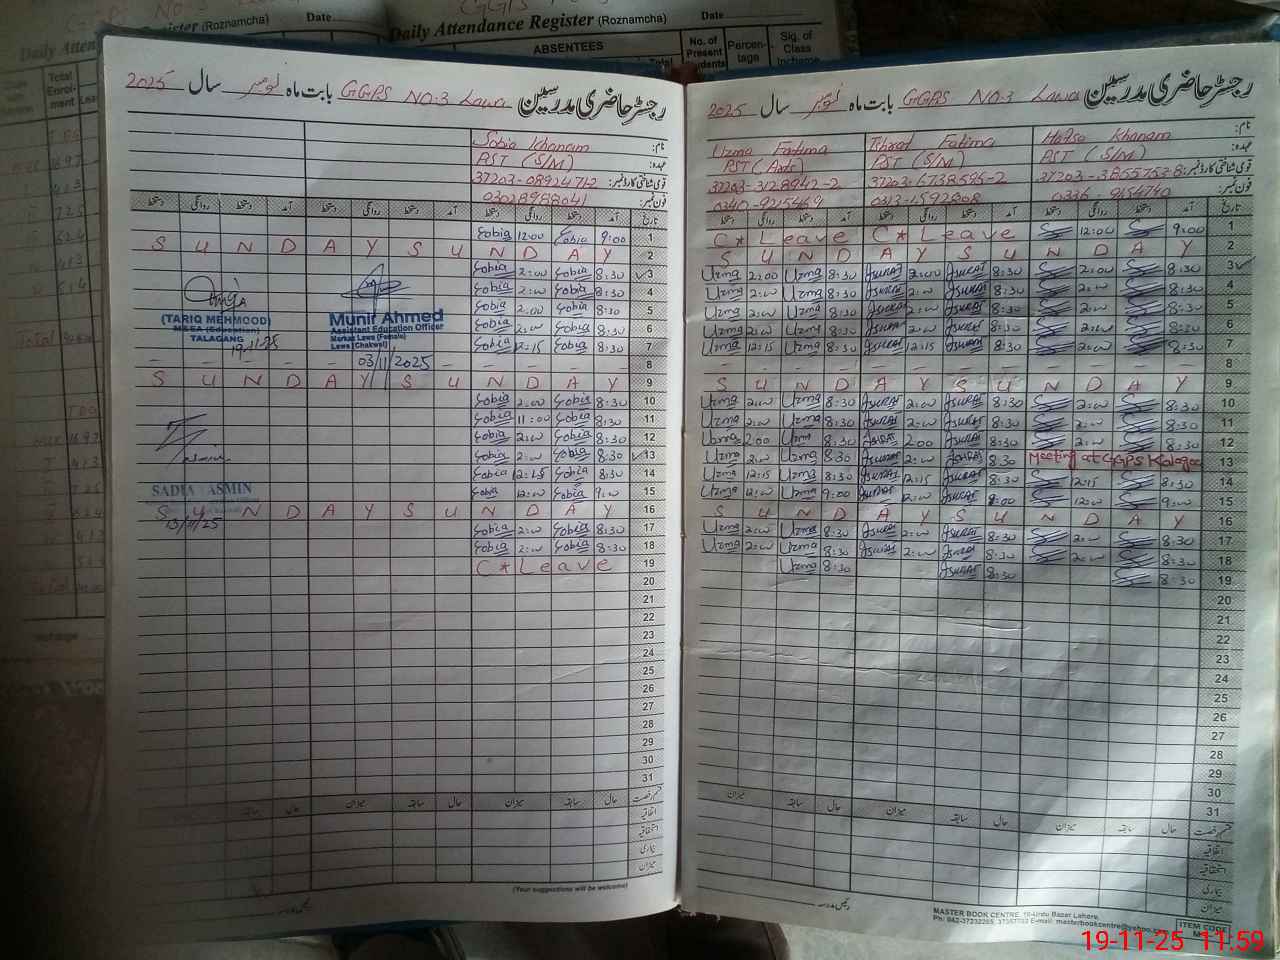 Register (Roznamcha) Date
Daily Attendance Register (Roznamcha) Date
ABSENTEES
No. of Present Students
Percen-tage
Sig. of Class Incharge
Total Enrol-ment
رجسٹر حاضری مدرسین بابت ماہ GGPS NO.3 Lawa نومبر سال 2025
نام: Sobia Khanam
عہدہ: PST (S/M)
قومی شناختی کارڈ نمبر: 37203-08924712
فون نمبر: 03028988041
تاریخ آمد دستخط روانگی دستخط آمد دستخط روانگی دستخط آمد دستخط روانگی دستخط
Sobia 12:00 Sobia 9:00 1
S U N D A Y S U N D A Y 2
Sobia 2:00 Sobia 8:30 3
Sobia 2:00 Sobia 8:30 4
Sobia 2:00 Sobia 8:30 5
Sobia 2:00 Sobia 8:30 6
Sobia 12:15 Sobia 8:30 7
8
S U N D A Y S U N D A Y 9
Sobia 2:00 Sobia 8:30 10
Sobia 11:00 Sobia 8:30 11
Sobia 2:00 Sobia 8:30 12
Sobia 2:00 Sobia 8:30 13
Sobia 12:15 Sobia 8:30 14
Sobia 12:00 Sobia 9:00 15
S U N D A Y S U N D A Y 16
Sobia 2:00 Sobia 8:30 17
Sobia 2:00 Sobia 8:30 18
C * Leave 19
20
21
22
23
24
25
26
27
28
29
30
31
(TARIQ MEHMOOD)
MEEA (Education)
TALAGANG
19-11-25
Munir Ahmed
Assistant Education Officer
Markaz Lawa (Female)
Lawa (Chakwal)
03/11/2025
SADIA YASMIN
13/11/25
قسم رخصت حال سابقہ میزان حال سابقہ میزان حال سابقہ
اتفاقیہ
استحقاقیہ
بیماری
میزان
(Your suggestions will be welcome)
رئیس مدرسہ
رجسٹر حاضری مدرسین بابت ماہ GGPS NO.3 Lawa نومبر سال 2025
نام: Uzma Fatima Ishrat Fatima Hafsa Khanam
PST (Arts) PST (S/M) PST (S/M)
37203-3128942-2 37203-6738595-2 37203-3855753-8
0340-9215469 0313-1592808 0336-9154740
C * Leave C * Leave 12:00 9:00 1
S U N D A Y S U N D A Y 2
Uzma 2:00 Uzma 8:30 ISHRAT 2:00 ISHRAT 8:30 2:00 8:30 3
Uzma 2:00 Uzma 8:30 ISHRAT 2:00 ISHRAT 8:30 2:00 8:30 4
Uzma 2:00 Uzma 8:30 ISHRAT 2:00 ISHRAT 8:30 2:00 8:30 5
Uzma 2:00 Uzma 8:30 ISHRAT 2:00 ISHRAT 8:30 2:00 8:30 6
Uzma 12:15 Uzma 8:30 ISHRAT 12:15 ISHRAT 8:30 12:15 8:30 7
8
S U N D A Y S U N D A Y 9
Uzma 2:00 Uzma 8:30 ISHRAT 2:00 ISHRAT 8:30 2:00 8:30 10
Uzma 2:00 Uzma 8:30 ISHRAT 2:00 ISHRAT 8:30 2:00 8:30 11
Uzma 2:00 Uzma 8:30 ISHRAT 2:00 ISHRAT 8:30 2:00 8:30 12
Uzma 2:00 Uzma 8:30 ISHRAT 2:00 ISHRAT 8:30 Meeting at 13
Uzma 12:15 Uzma 8:30 ISHRAT 12:15 ISHRAT 8:30 12:15 8:30 14
Uzma 12:00 Uzma 9:00 ISHRAT 12:00 ISHRAT 9:00 12:00 9:00 15
S U N D A Y S U N D A Y 16
Uzma 2:00 Uzma 8:30 ISHRAT 2:00 ISHRAT 8:30 2:00 8:30 17
Uzma 2:00 Uzma 8:30 ISHRAT 2:00 ISHRAT 8:30 2:00 8:30 18
Uzma 8:30 ISHRAT 8:30 8:30 19
20
21
22
23
24
25
26
27
28
29
30
31
قسم رخصت حال سابقہ میزان حال سابقہ میزان حال سابقہ میزان
اتفاقیہ
استحقاقیہ
بیماری
میزان
رئیس مدرسہ
MASTER BOOK CENTRE, 10-Urdu Bazar Lahore.
ITEM CODE
19-11-25 11:59